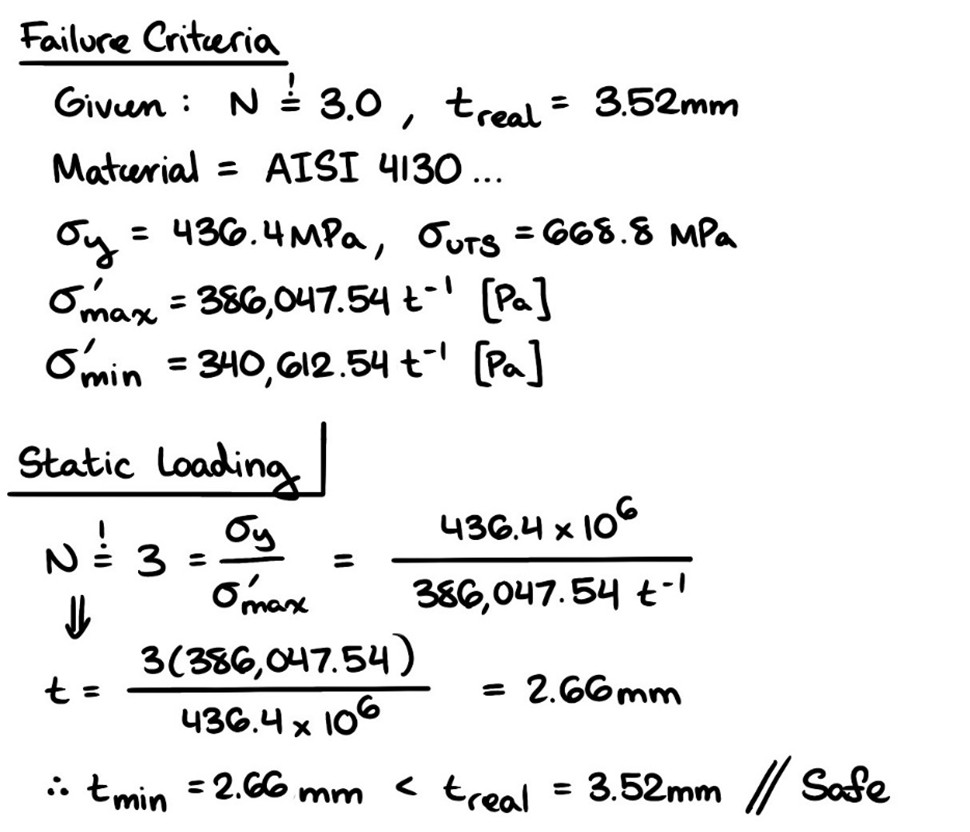 Failure Criteria
Given : N ≟ 3.0 , t_real = 3.52mm
Material = AISI 4130 ...
σ_y = 436.4 MPa, σ_UTS = 668.8 MPa
σ'_max = 386,047.54 t⁻¹ [Pa]
σ'_min = 340,612.54 t⁻¹ [Pa]
Static Loading
N =! 3 = σ_y / σ'_max = 436.4 x 10⁶ / 386,047.54 t⁻¹
⇓
t = 3(386,047.54) / 436.4 x 10⁶ = 2.66mm
∴ t_min = 2.66 mm < t_real = 3.52mm // Safe